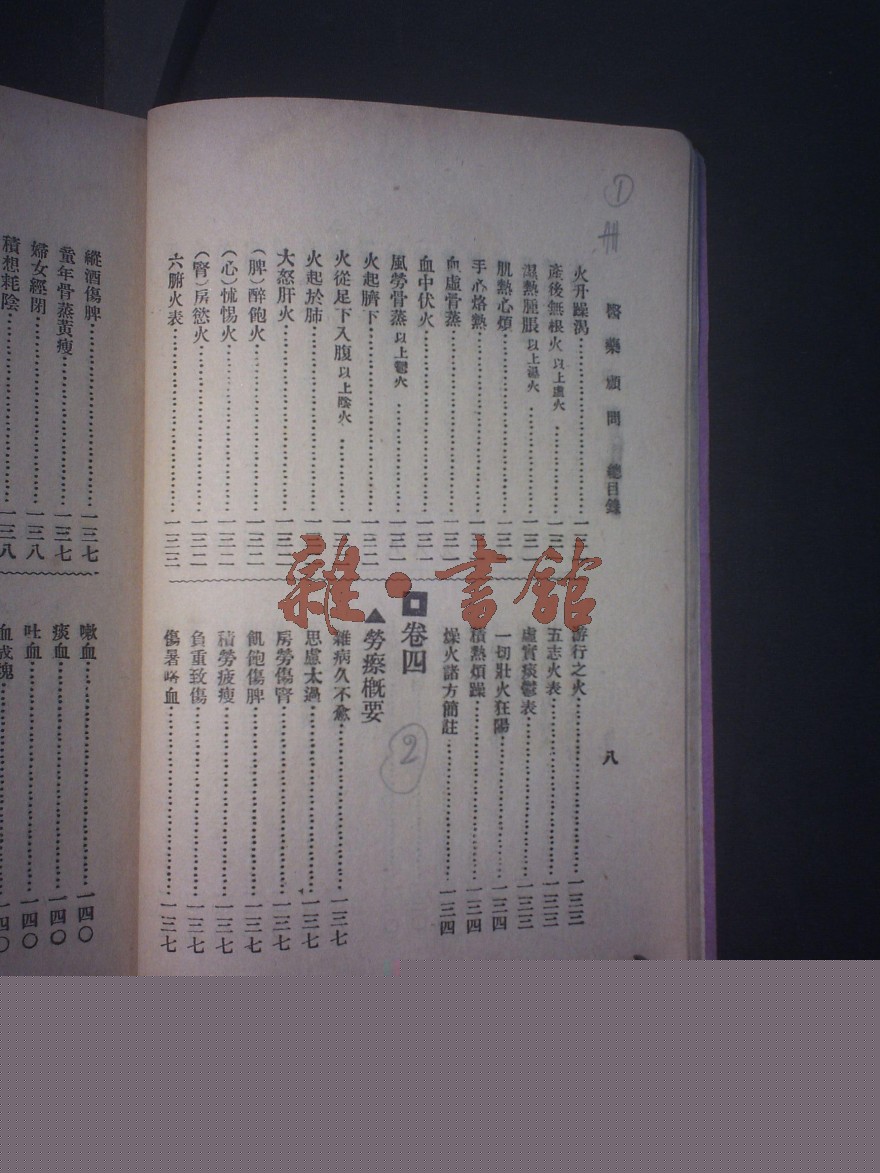 醫藥顧問 總目錄
八
火升躁渴
產後無根火 以上虛火
濕熱腫脹 以上濕火
肌熱心煩
手心烙熱
血虛骨蒸
血中伏火
風勞骨蒸 以上鬱火
火起臍下
火從足下入腹 以上陰火
火起於肺
大怒肝火
(脾)醉飽火……一三二
(心)怵惕火……一三二
(腎)房慾火……一三二
六腑火表……一三三
游行之火……一三三
五志火表……一三三
虛實痰鬱表……一三三
一切壯火狂陽……一三四
積熱煩躁……一三四
燥火諸方簡註……一三四
卷四
▲勞瘵概要
雜病久不愈……一三七
思慮太過……一三七
房勞傷腎……一三七
飢飽傷脾……一三七
積勞疲瘦……一三七
負重致傷……一三七
傷暑咯血……一三七
縱酒傷脾……一三七
童年骨蒸黃瘦……一三七
婦女經閉……一三八
積想耗陰……一三八
嗽血……一四〇
痰血……一四〇
吐血……一四〇
血成塊……一四〇
①
2
雜·書館